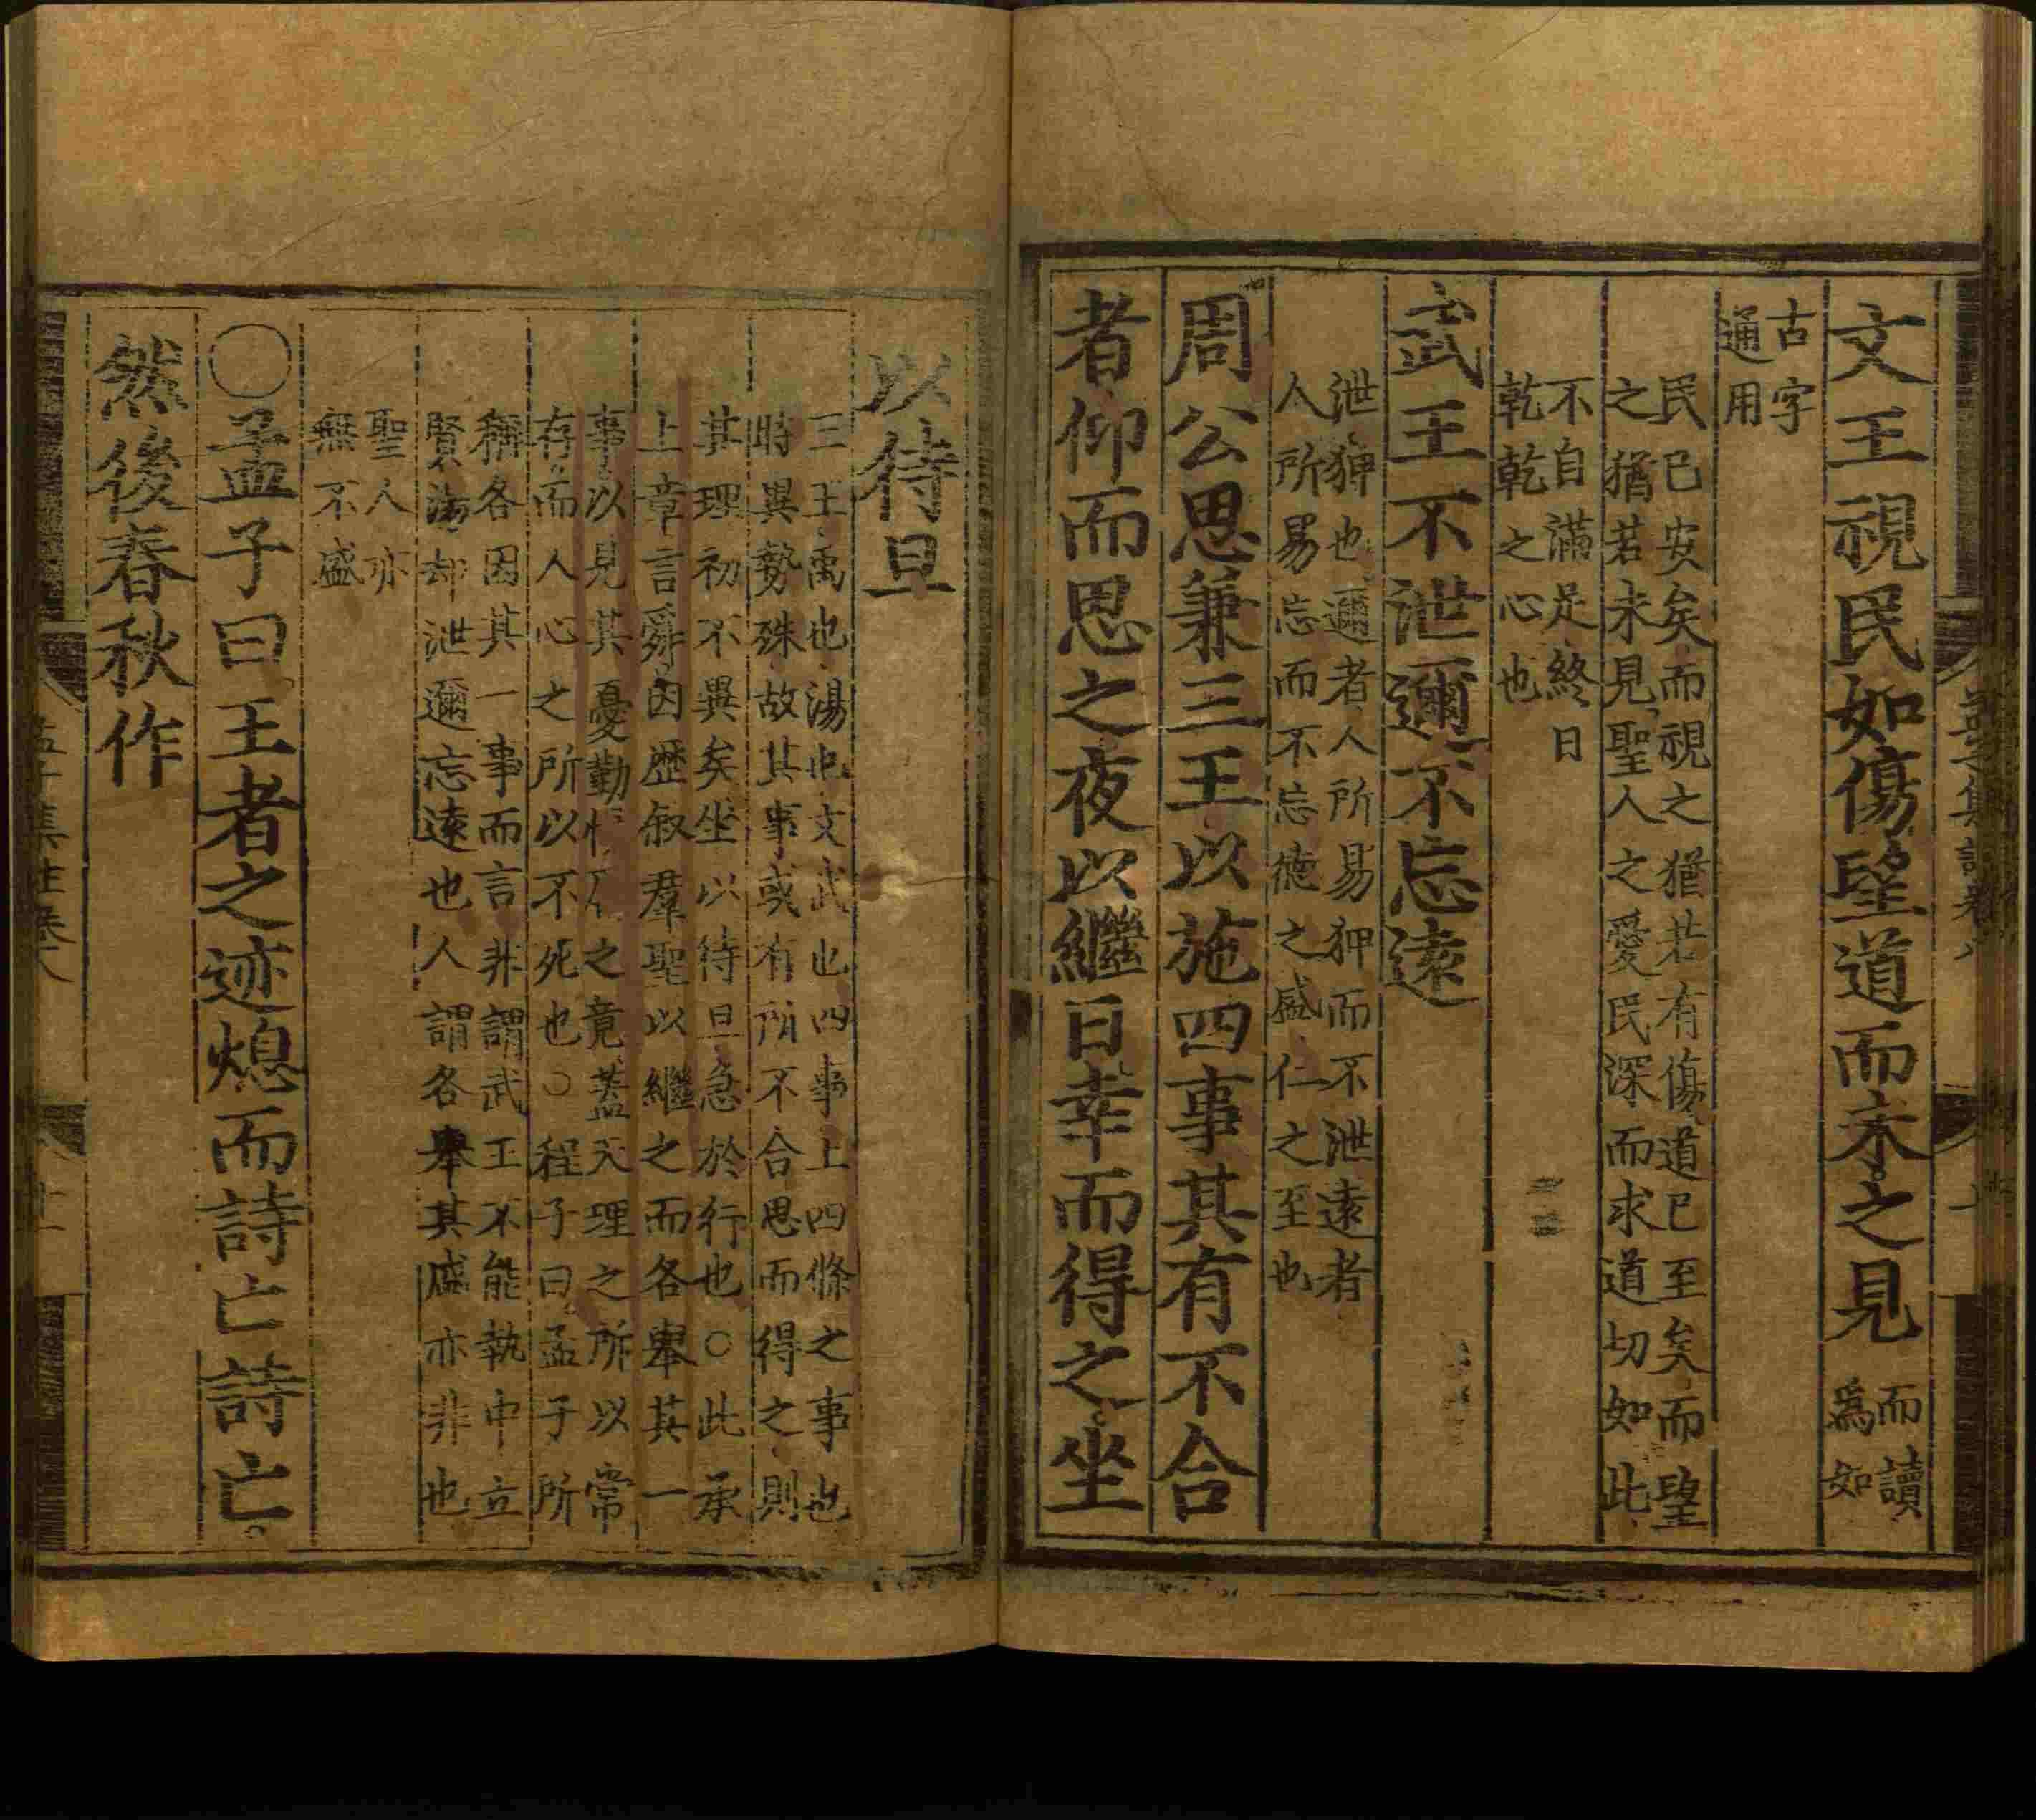 文王視民如傷望道而未之見
而讀
爲如
古字
通用
民已安矣而視之猶若有傷道已至矣而望
之猶若未見聖人之愛民深而求道切如此
不自滿足終日
乾乾之心也
武王不泄邇不忘遠
泄狎也邇者人所易狎而不泄遠者
人所易忘而不忘德之盛仁之至也
周公思兼三王以施四事其有不合
者仰而思之夜以繼日幸而得之坐
以待旦
三王禹也湯也文武也四事上四條之事也
時異勢殊故其事或有所不合思而得之則
其理初不異矣坐以待旦急於行也○此承
上章言舜因歴叙羣聖以繼之而各舉其一
事以見其憂勤惕厲之意蓋天理之所以常
存而人心之所以不死也○程子曰孟子所
稱各因其一事而言非謂武王不能執中立
賢湯却泄邇忘遠也人謂各舉其盛亦非也
聖人亦
無不盛
○孟子曰王者之迹熄而詩亡詩亡
然後春秋作
孟子集註卷八